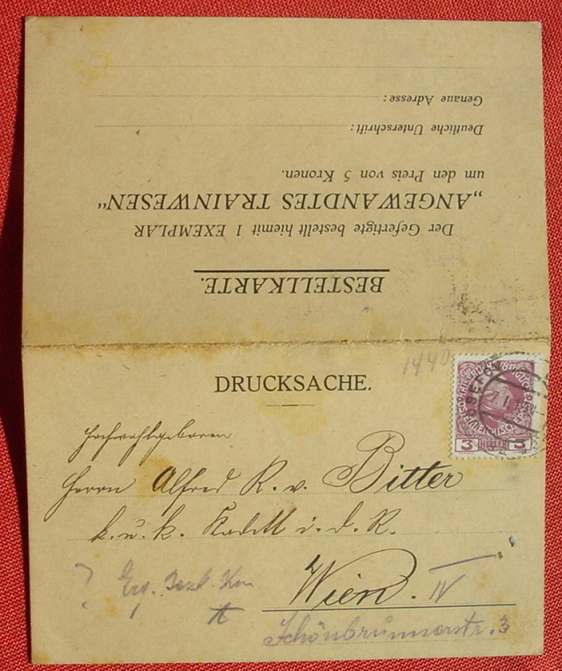 BESTELLKARTE.
Der Gefertigte bestellt hiemit 1 EXEMPLAR
„ANGEWANDTES TRAINWESEN“
um den Preis von 5 Kronen.
Deutliche Unterschrift:
Genaue Adresse:
1440
DRUCKSACHE.
3 3
Hochwohlgeboren
Herrn Alfred R. v. Bitter
k. u. k. Kadett i. d. R.
Wien. IV
? Erg. Bezk.
Schönbrunnerstr. 3